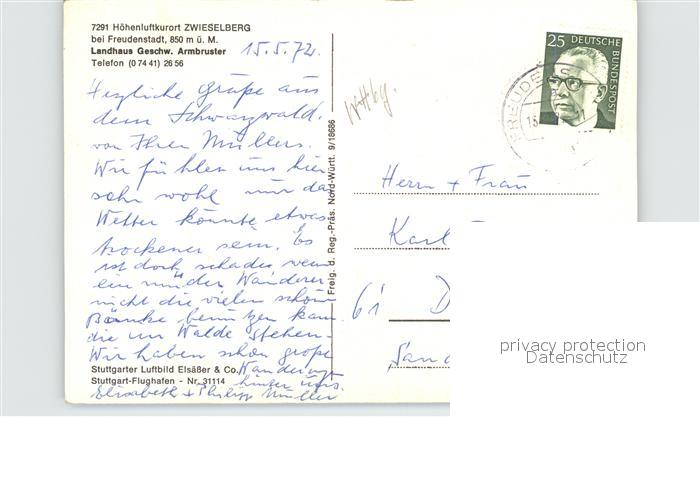 7291 Höhenluftkurort ZWIESELBERG
bei Freudenstadt, 850 m ü. M.
Landhaus Geschw. Armbruster
Telefon (0 74 41) 26 56
15.5.72.
Herzliche Grüße aus
dem Schwarzwald.
von Ihren Müllers.
Wir fühlen uns hier
sehr wohl nur das
Wetter könnte etwas
trockener sein. Es
ist doch schade wenn
ein müder Wanderer
nicht die vielen schönen
Bänke benützen kann
die im Walde stehen.
Wir haben schon große
Wanderungen
hinter uns.
Elisabeth + Philipp Müller
Stuttgarter Luftbild Elsäßer & Co.
Stuttgart-Flughafen - Nr. 31114
Freig. d. Reg.-Präs. Nord-Württ. 9/18686
25 DEUTSCHE
BUNDESPOST
FREUDENS
Herrn + Frau
Karl
61 D
Sand
privacy protection
Datenschutz